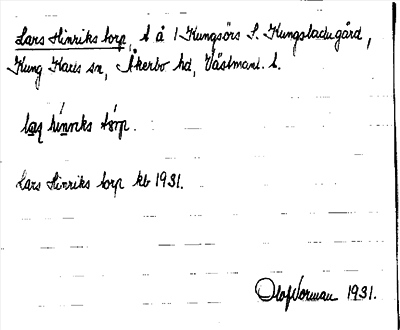 Lars Hinriks torp, t å 1 Kungsörs S. Kungsladugård,
Kung Karls sn, Åkerbo hd, Västmanl. l.
la̲s̲ hínrıks tórp.
Lars Hinriks torp kb 1931.
Olof Vorman 1931.